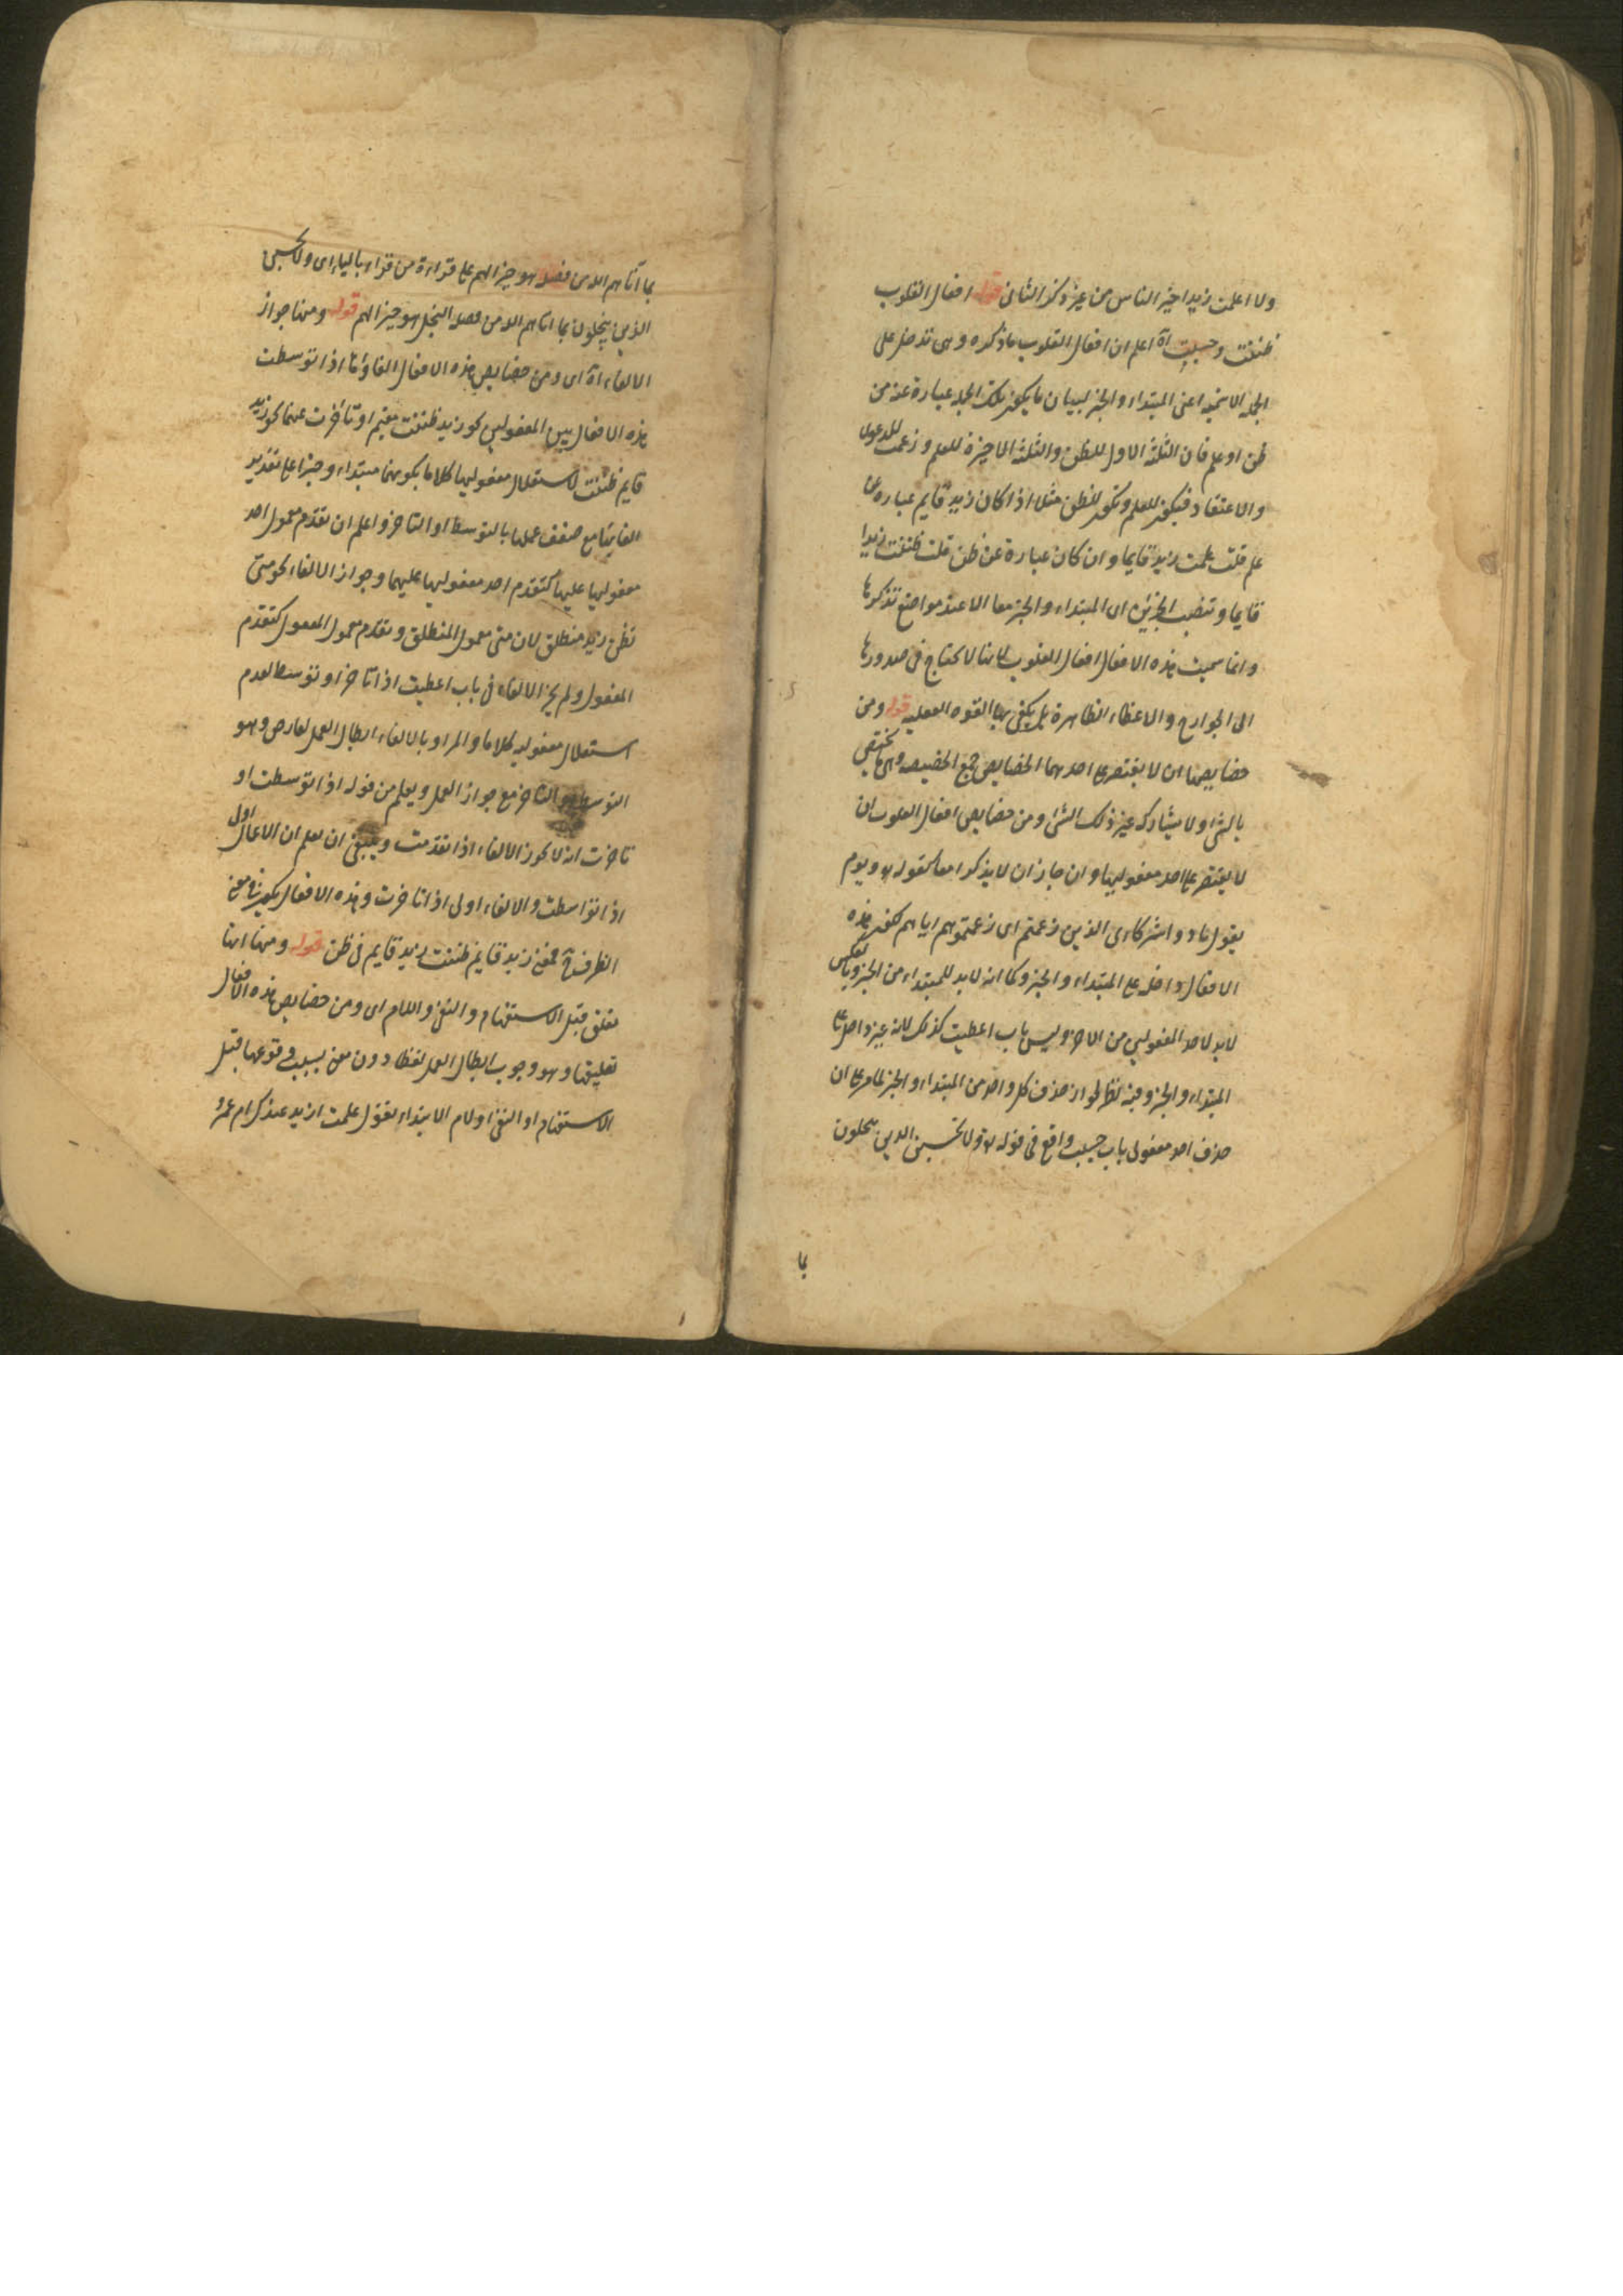 ولا اعلمت زيدا خير الناس من غير ذكر الثانى قوله افعال القلوب
ظننت وحسبت آه اعلم ان افعال القلوب ماذكره وهى تدخل على
الجملة الاسمية اعنى المبتداء والخبر لبيان ما يكون تلك الجملة عبارة عنه من
ظن او علم فان الثلثة الاول للظن والثلثة الاخيرة للعلم وزعمت للدعوى
والاعتقاد فيكون للعلم وتكون للظن مثلا اذا كان زيد قايم عبارة عن
علم قلت علمت زيدا قايما وان كان عبارة عن ظن قلت ظننت زيدا
قايما وتنصب الجزئين اى المبتداء والخبر معا الا عند مواضع تذكرها
وانما سميت هذه الافعال افعال القلوب لانها لا تحتاج فى صدورها
الى الجوارح والاعضاء الظاهرة بل يكفى بها القوة العقلية قوله ومن
خصايصها ان لا يقتصر على احدهما الخصايص جمع الخصيصه وهى ما يختص
بالشئ ولا يشاركه غير ذلك الشئ ومن خصايص افعال القلوب ان
لا يقتصر على احد مفعوليها وان جاز ان لا يذكرا معا كقوله تع ويوم
يقول نادوا شركاءى الذين زعمتم اى زعمتموهم اياهم لكون هذه
الافعال داخلة على المبتداء والخبر وكما انه لابد للمبتداء من الخبر وبالعكس
لابد لاحد المفعولين من الاخر وليس باب اعطيت كذلك لانه غير داخل على
المبتداء والخبر وفيه نظر لجواز حذف كل واحد من المبتداء والخبر لما مر على ان
حذف احد مفعولى باب حسبت واقع فى قوله تع ولا تحسبن الذين يبخلون
بما
بما آتاهم الله من فضله هو خيرا لهم على قراءة من قراء بالياء اى ولا تحسبن
الذين يبخلون بما اتاهم الله من فضله البخل هو خيرا لهم قوله ومنها جواز
الالغاء آه اى ومن خصايص هذه الافعال الغاؤها اذا توسطت
هذه الافعال بين المفعولين نحو زيد ظننت مقيم او تأخرت عنهما نحو زيد
قايم ظننت لاستقلال مفعوليها كلاما بكونهما مبتداء وخبرا على تقدير
الغائها مع ضعف عملها بالتوسط او التاخر واعلم ان تقدم معمول احد
مفعوليها عليها كتقدم احد مفعوليها عليهما وجواز الالغاء نحو متى
تظن زيد منطلق لان متى معمول المنطلق وتقدم معمول المعمول كتقدم
المفعول ولم يجز الالغاء فى باب اعطيت اذا تاخر او توسط لعدم
استقلال مفعوليه كلاما والمراد بالالغاء ابطال العمل لعارض وهو
التوسط والتاخر مع جواز العمل ويعلم من قوله اذا توسطت او
تاخرت انه لا يجوز الالغاء اذا تقدمت وينبغى ان يعلم ان الاعمال اولى
اذا توسطت والالغاء اولى اذا تاخرت وهذه الافعال يكون فى معنى
الظرف فمعنى زيد قايم ظننت زيد قايم فى ظنى قوله ومنها انها
تعلق قبل الاستفهام والنفى واللام اى ومن خصايص هذه الافعال
تعليقها وهو وجوب ابطال العمل لفظا دون معنى بسبب وقوعها قبل
الاستفهام او النفى او لام الابتداء تقول علمت ازيد عندك ام عمرو